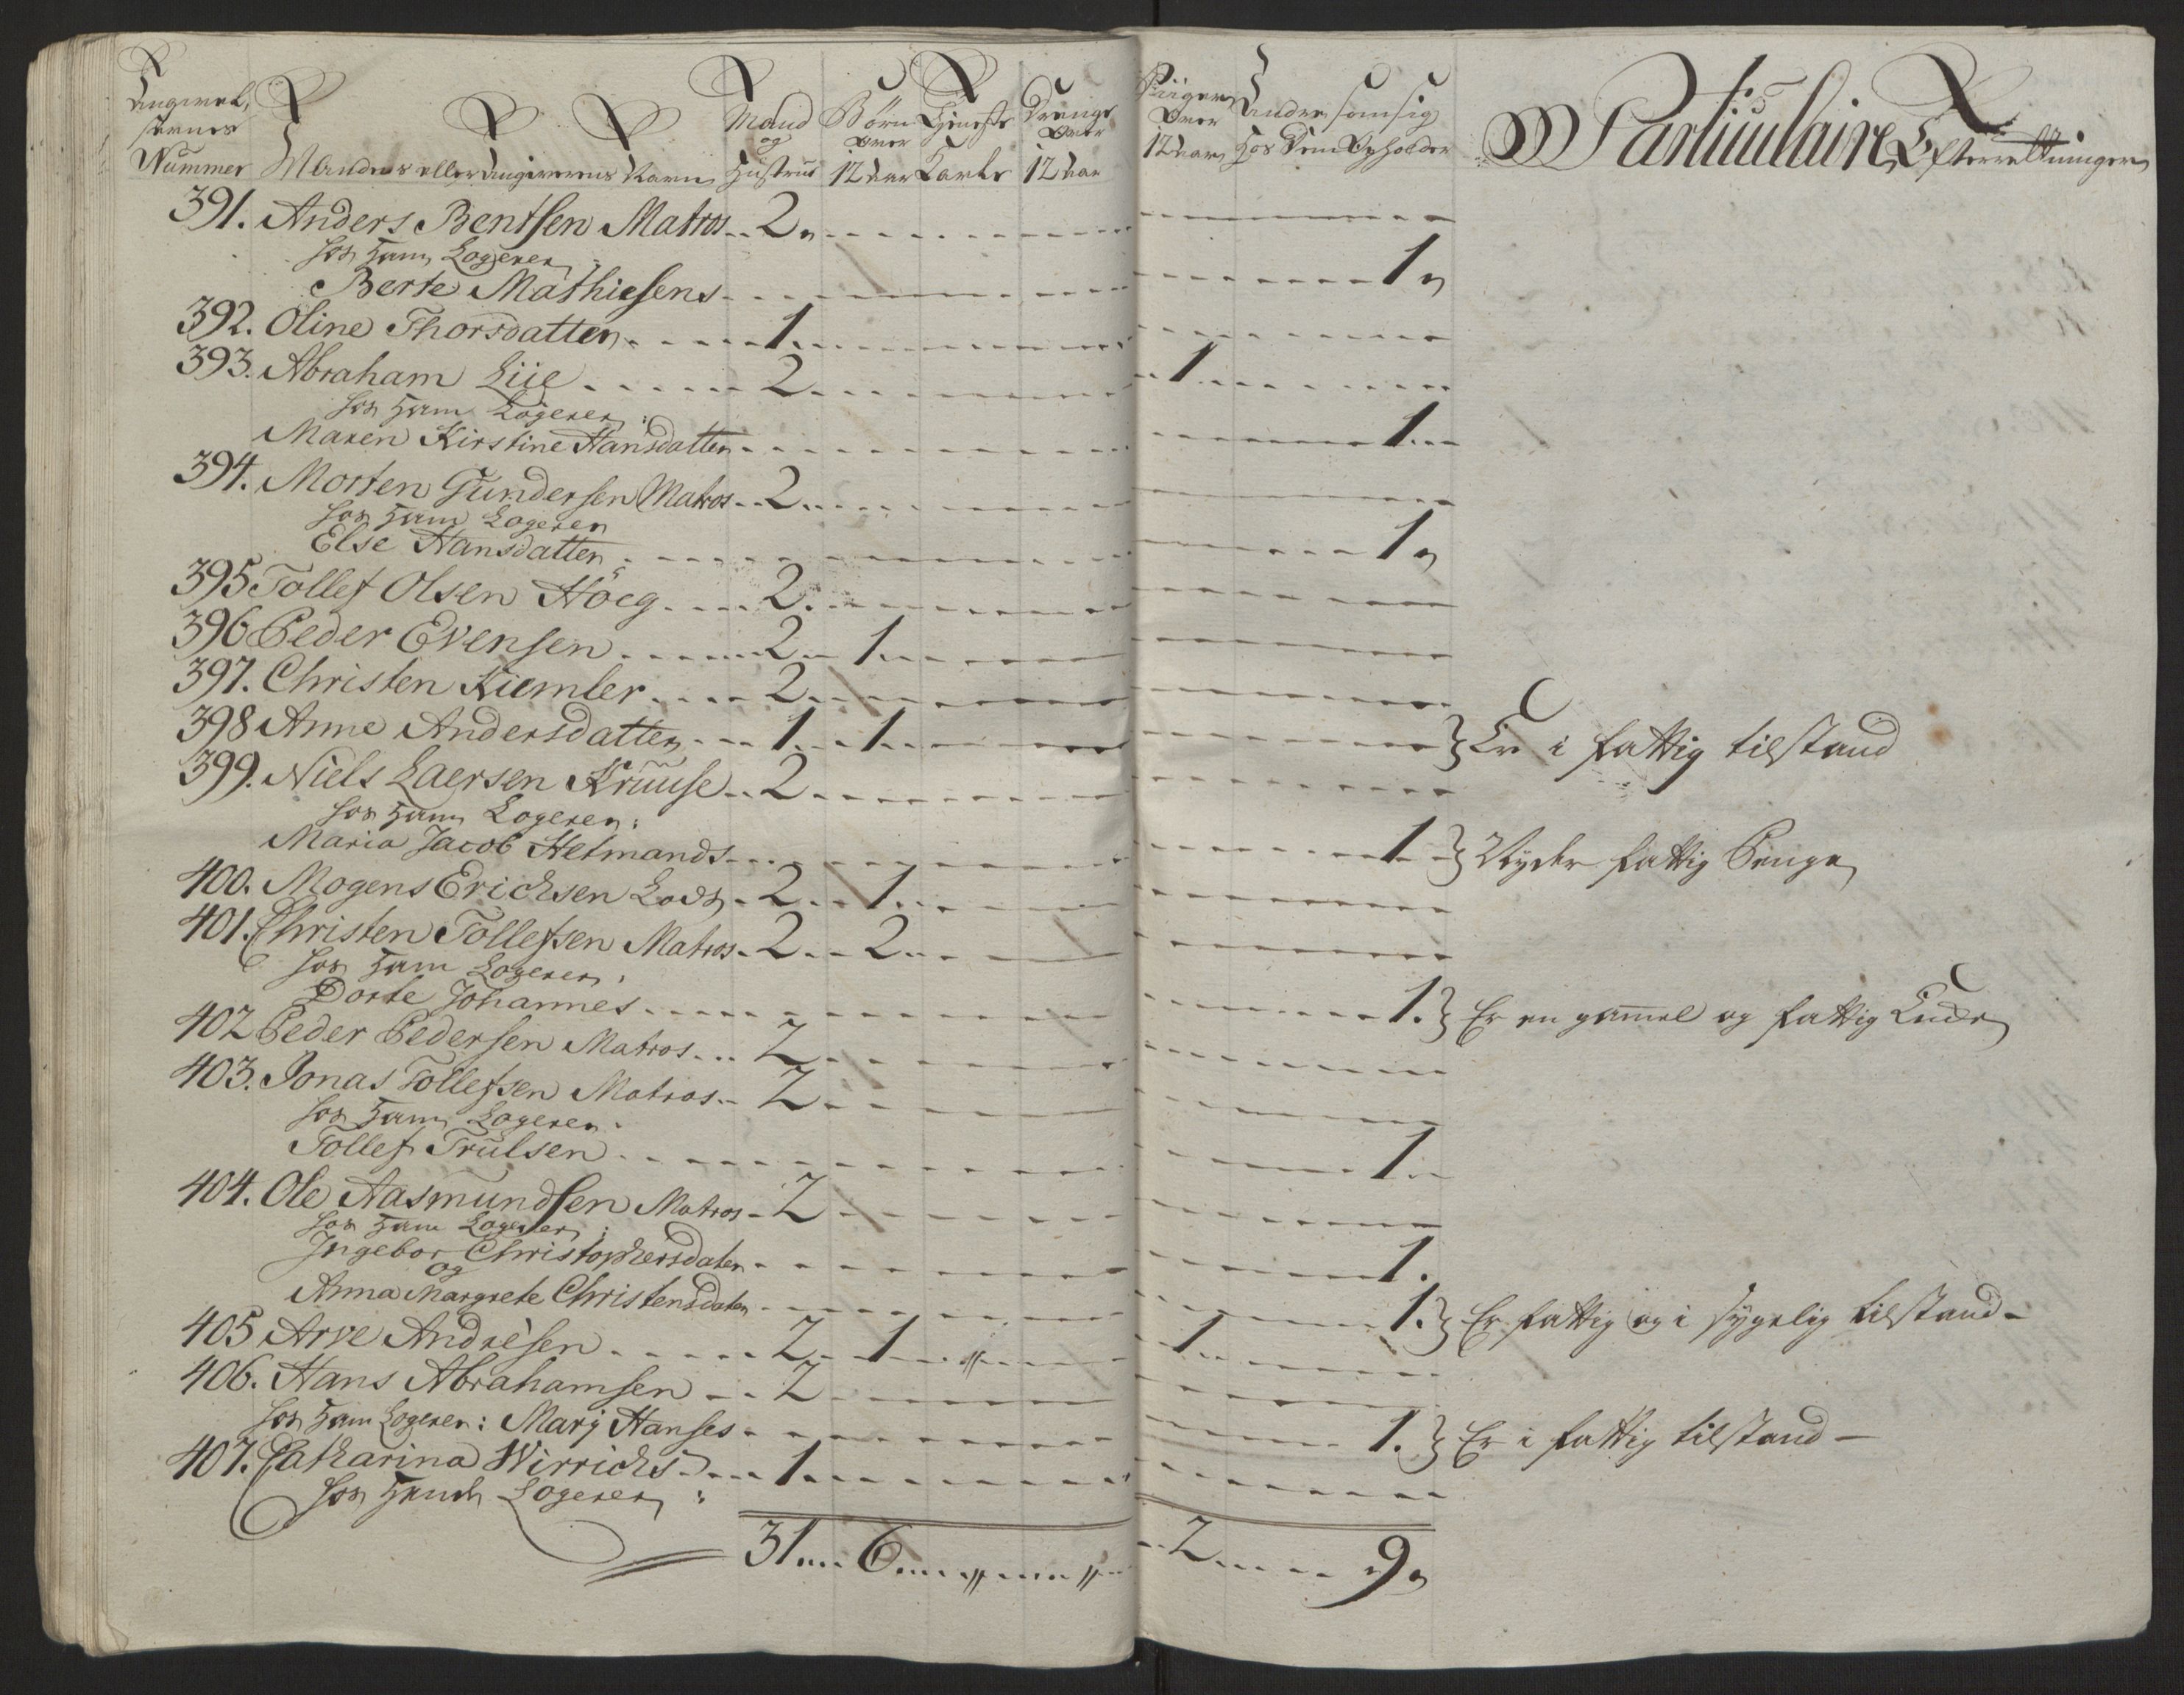 Angivel,
sernes
Nummer
Mandens eller Angiverens Navn
Mand
og
Hustrue
Børn
over
12 Aar
Tieneste
Karle
Drenge
over
12 Aar
Piiger
over
12 Aar
Andre som sig
hos dem opholder
Particulaire Efterretninger
391. Anders Bentsen Matros 2 "
hos ham Logerer
Berte Mathiesens 1 "
392. Oline Thorsdatter 1
393. Abraham Liie 2 1
hos ham Logerer:
Maren Kirstine Hansdatter 1
394. Morten Gundersen Matros 2
hos ham Logerer
Else Hansdatter 1 "
395 Tollef Olsen Höeg 2
396 Peder Evensen 2 1
397. Christen Kiemler 2
398 Anne Andersdatter 1 1 } Er i fattig tilstand
399. Niels Laersen Kruuse 2
hos ham Logerer:
Maria Jacob Hetmands 1 } Nyder fattig Penge
400. Mogens Erichsen Lods 2 1
401. Christen Tollefsen Matros 2 2
hos ham Logerer,
Dorte Johannes 1. } Er en gamel og fattig Enke
402 Peder Pedersen Matros 2
403. Jonas Tollefsen Matros 2
hos ham Logerer.
Tollef Trulsen 1
404. Ole Aasmundsen Matros 2
hos ham Logerer:
Ingebor Christophersdater 1.
og
Anna Margrete Christensdater 1. } Er fattig og i sygelig tilstand -
405 Arve Andresen 2 1 " 1
406. Hans Abrahamsen 2
hos ham Logerer: Marj Hanses 1. } Er i fattig tilstand -
407. Catharina Wirrichs 1
hos hende Logerer:
31 6 " " 2 9 "